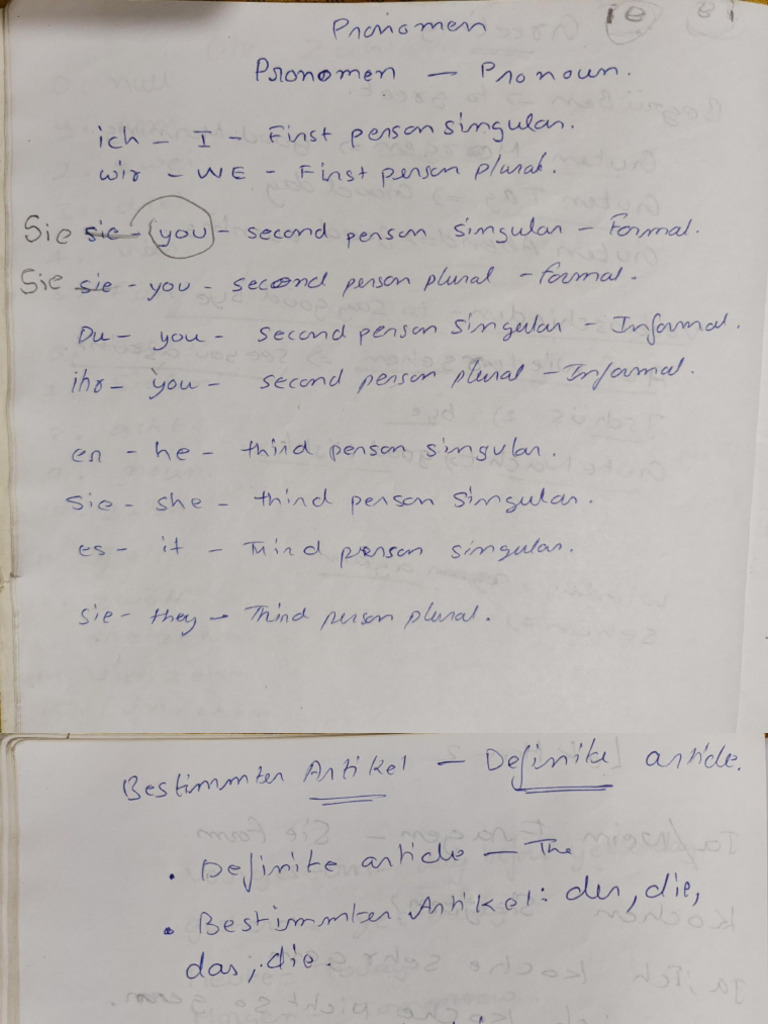 Pronomen
Pronomen - Pronoun.
ich - I - First person singular.
wir - WE - First person plural.
Sie sie - you - second person singular - Formal.
Sie sie - you - second person plural - formal.
Du - you - second person singular - Informal.
ihr - you - second person plural - Informal.
er - he - third person singular.
sie - she - third person singular.
es - it - Third person singular.
sie - they - Third person plural.
Bestimmter Artikel - Definite article.
• Definite article - The
• Bestimmter Artikel: der, die,
das, die.